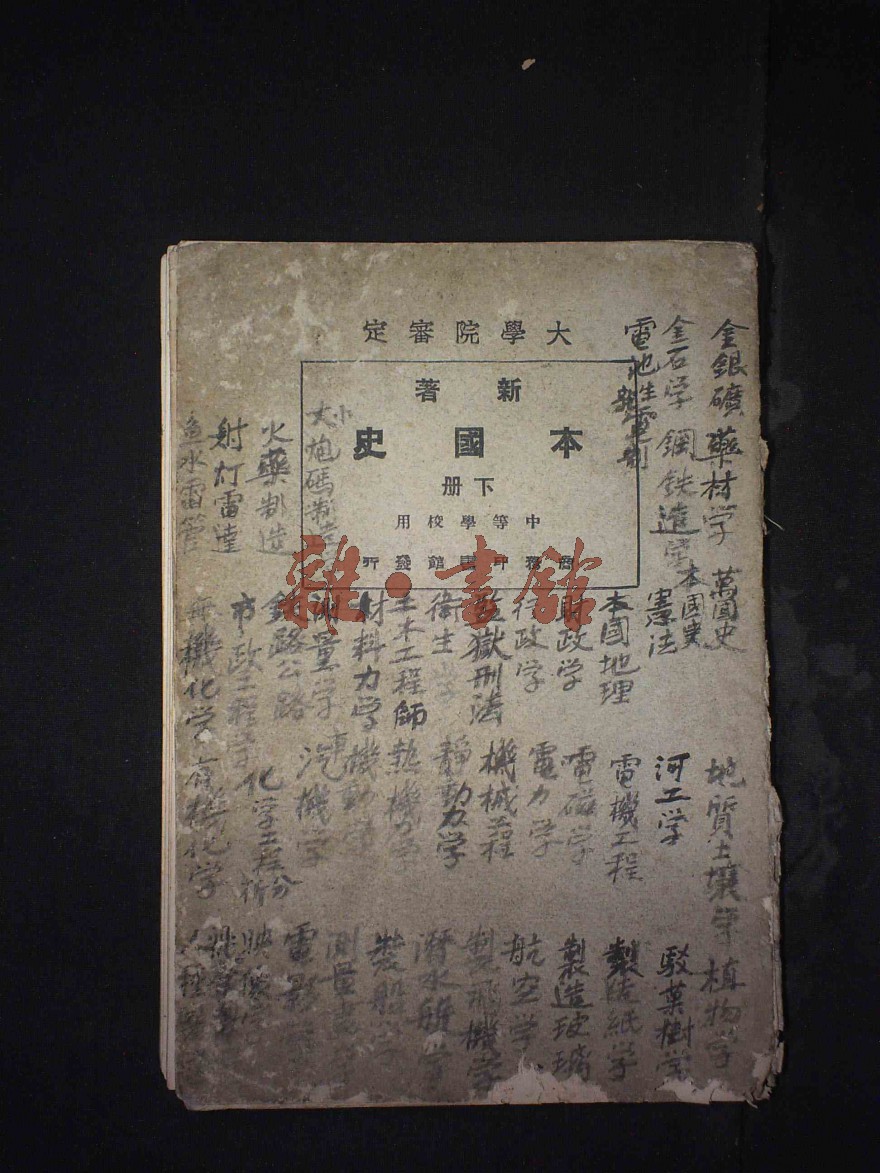 大學院審定
新著
本國史
下册
中等學校用
商務印書館發行
雜·書館
金銀礦
藥材学
萬国史
金石学
鋼鉄造学
本国史
電池生電

憲法
本国地理
財政学
行政学
監獄刑法
衛生学
土木工程師
材料力学
測量学
鉄路公路
市政工程学
無機化学
小大炮碼制造
火藥制造
射灯雷達
魚水雷管
地質土壤学
河工学
電機工程
電磁学
電力学
機械工程
靜動力学
熱機力学
機動学
汽車機学
化学工程分析
有機化学
植物学
駁菓樹学
製造紙学
製造玻璃
航空学
製飛機学
潛水艇学
製船学
測量
電影
映像学